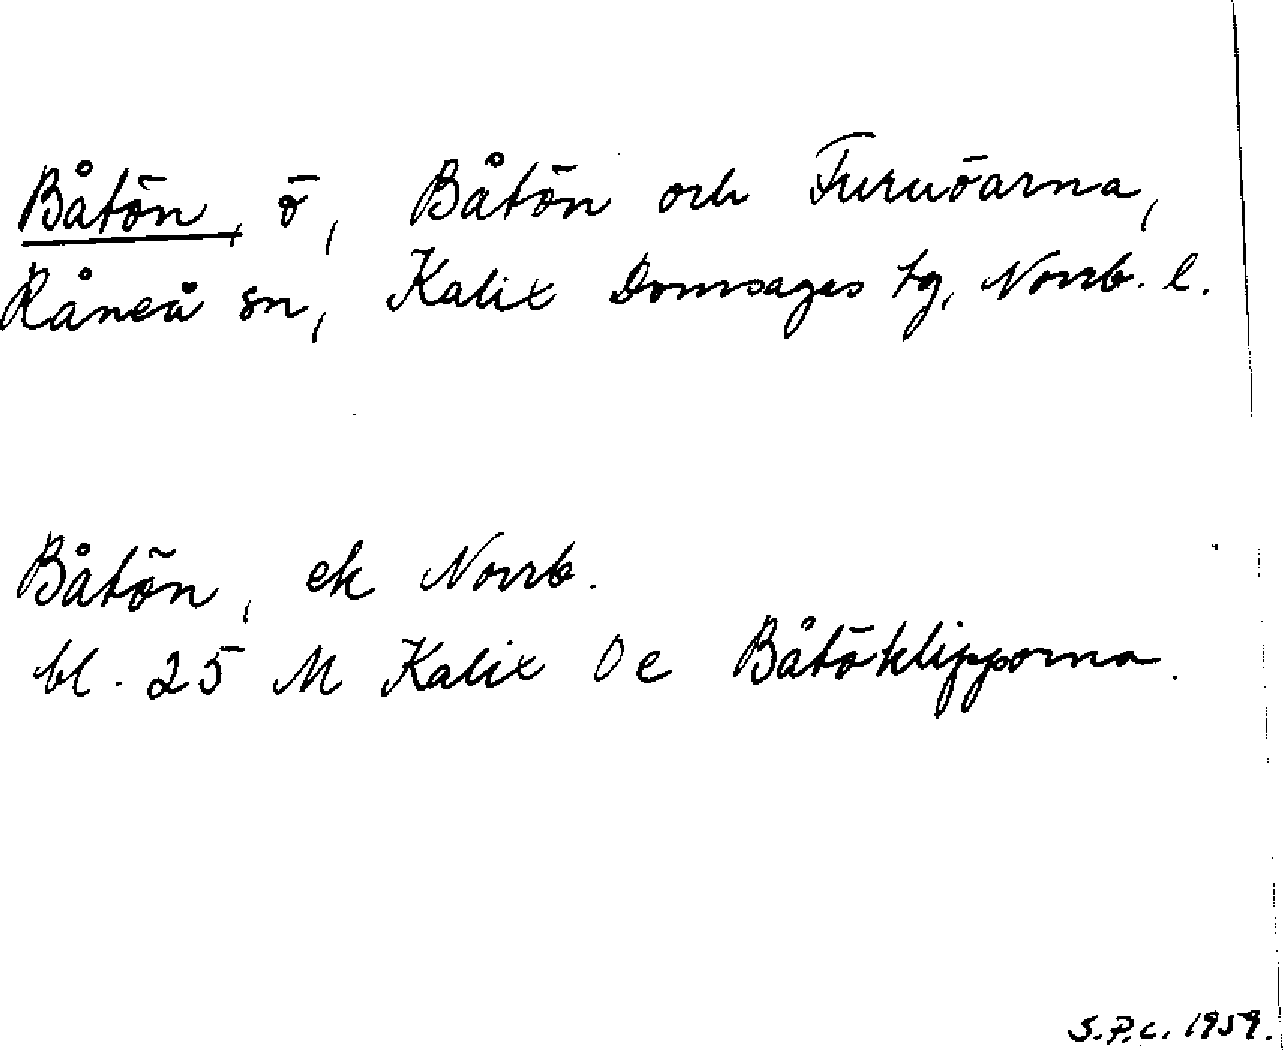 Båtön, ö, Båtön och Furuöarna,
Råneå sn, Kalix Domsagas tg, Norrb. l.
Båtön, ek Norrb.
bl. 25 M Kalix De Båtöklipporna.
S.P.C. 1959.